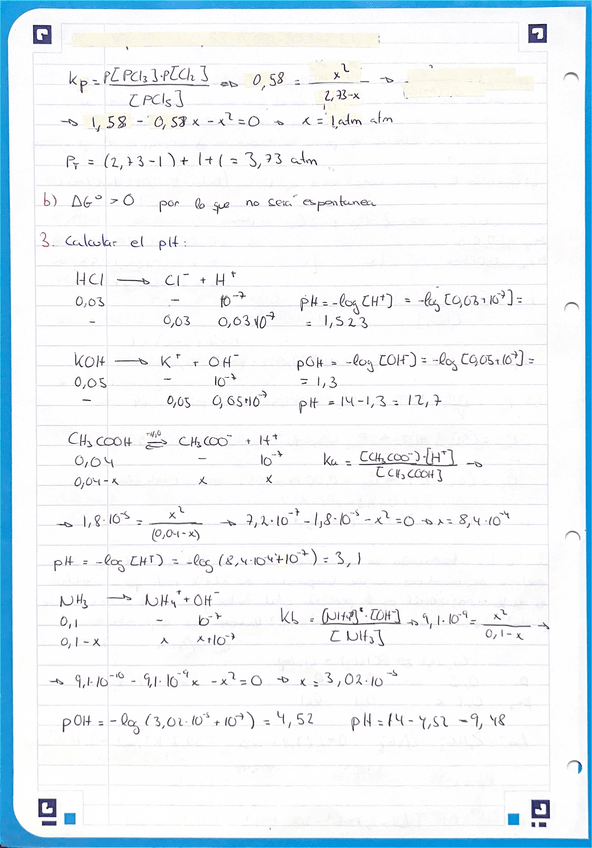 Kp = P[PCl3]·P[Cl2] / [PCl5] => 0,58 = x² / 2,73-x →
→ 1,58 - 0,58x - x² = 0 → x = 1,atm atm
PT = (2,73-1) + 1+1 = 3,73 atm
b) ΔG° > 0 por lo que no será espontanea
3. Calcular el pH:
HCl → Cl⁻ + H⁺
0,03 - 10⁻⁷ pH = -log[H⁺] = -log[0,03+10⁻⁷] =
- 0,03 0,03+10⁻⁷ = 1,523
KOH → K⁺ + OH⁻ pOH = -log[OH⁻] = -log[0,05+10⁻⁷] =
0,05 - 10⁻⁷ = 1,3
- 0,05 0,05+10⁻⁷ pH = 14-1,3 = 12,7
CH3COOH ⇌ CH3COO⁻ + H⁺
0,04 - 10⁻⁷ Ka = [CH3COO⁻]·[H⁺] / [CH3COOH] →
0,04-x x x
→ 1,8·10⁻⁵ = x² / (0,04-x) → 7,2·10⁻⁷ - 1,8·10⁻⁵ - x² = 0 → x = 8,4·10⁻⁴
pH = -log[H⁺] = -log(8,4·10⁻⁴+10⁻⁷) = 3,1
NH3 → NH4⁺ + OH⁻
0,1 - 10⁻⁷ Kb = [NH4]⁺·[OH⁻] / [NH3] → 9,1·10⁻⁹ = x² / 0,1-x →
0,1-x x x+10⁻⁷
→ 9,1·10⁻¹⁰ - 9,1·10⁻⁹x - x² = 0 → x = 3,02·10⁻⁵
pOH = -log(3,02·10⁻⁵+10⁻⁷) = 4,52 pH = 14-4,52 = 9,48